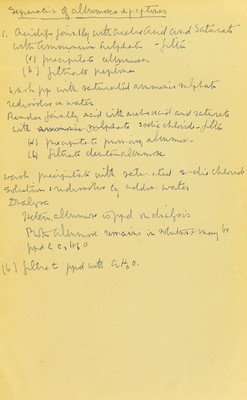 Separation of albumoses & peptones
1. Acidify faintly with acetic acid and saturate
with ammonium sulphate - filter
(a) precipitate albumoses
(b) filtrate peptones
wash pp with saturated ammonic sulphate
redissolve in water
Render faintly acid with acetic acid and saturate
with sodic chloride - filter
(a) precipitate primary albumose
(b) filtrate deuteroalbumose
wash precipitate with saturated sodic chloride
solution, redissolve by adding water
Dialyse
Hetero albumose is ppd on dialysis
Proto albumose remains in solution may be
ppd by
(b) filtrate ppd with